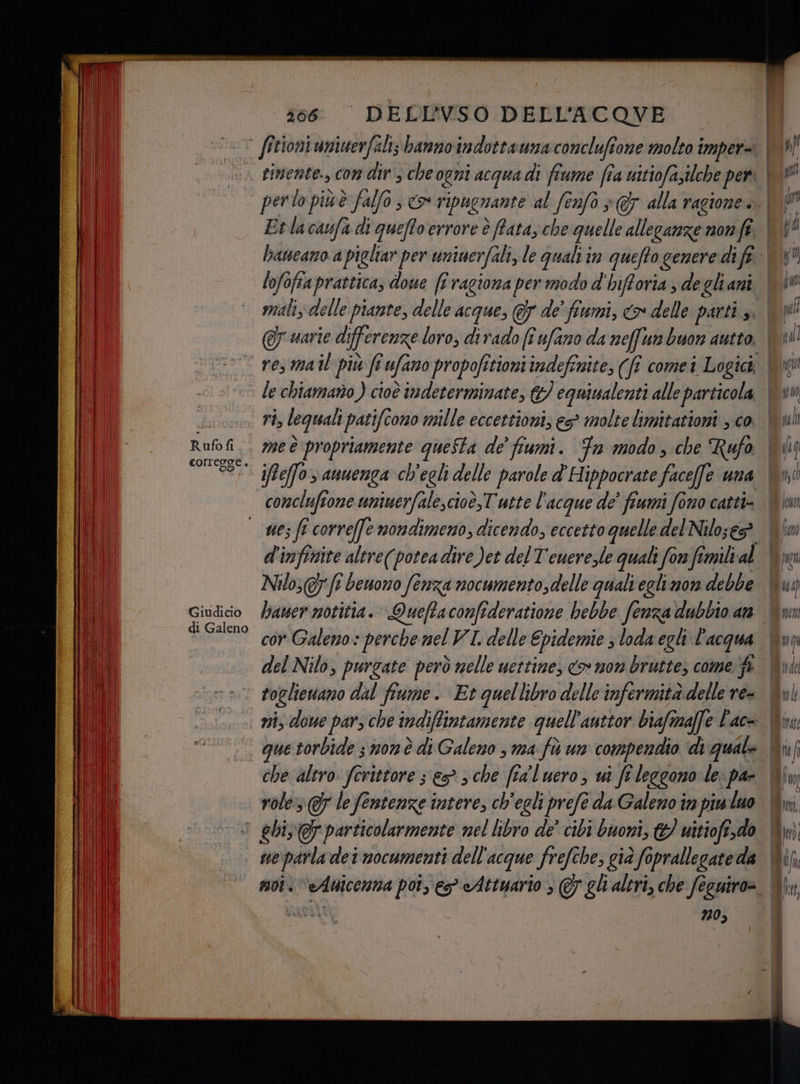 266 DELL'VSO DELL'ACQVE
ſitioni uniuerſali; hanno indotta una concluſione molto imper-
tinente, con dir', che ogni acqua di fiume ſia uitioſa, ilche per
per lo più è falſo, & ripugnante al ſenſo, & alla ragione.
Et la cauſa di queſto errore è ſtata, che quelle alleganze non ſi
haueano a pigliar per uniuerſali, le quali in queſto genere di fi
loſofia prattica, doue ſi ragiona per modo d'hiſtoria, de gli ani
mali, delle piante, delle acque, & de' fiumi, & delle parti,
& uarie differenze loro, di rado ſi uſano da neſſun buon autto
re, ma il più ſi uſano propoſitioni indefinite, (ſi come i Logici
le chiamano) cioè indeterminate, & equiualenti alle particola
ri, lequali patiſcono mille eccettioni, & molte limitationi, co
me è propriamente queſta de' fiumi. In modo, che Rufo
Rufo ſi
corregge.
iſteſſo, auuenga ch'egli delle parole d'Hippocrate faceſſe una
concluſione uniuerſale, cioè, Tutte l'acque de' fiumi ſono catti-
ue; ſi correſſe nondimeno, dicendo, eccetto quelle del Nilo; &
d'infinite altre (potea dire) et del Teuere, le quali ſon ſimili al
Nilo, & ſi beuono ſenza nocumento, delle quali egli non debbe
hauer notitia. Queſta conſideratione hebbe ſenza dubbio an
Giudicio
di Galeno
cor Galeno: perche nel VI. delle Epidemie, loda egli l'acqua
del Nilo, purgate però nelle uettine, & non brutte, come ſi
toglieuano dal fiume. Et quel libro delle infermità delle re-
ni, doue par, che indiſtintamente quell'auttor biaſmaſſe l'ac-
que torbide; non è di Galeno, ma fù un compendio di qual-
che altro ſcrittore; &, che ſia'l uero, ui ſi leggono le pa-
role, & le ſentenze intere, ch'egli preſe da Galeno in piu luo
ghi, & particolarmente nel libro de' cibi buoni, & uitioſi, do
ue parla dei nocumenti dell'acque freſche, già ſoprallegate da
noi. Auicenna poi, & Attuario, & gli altri, che ſeguiro-
no,